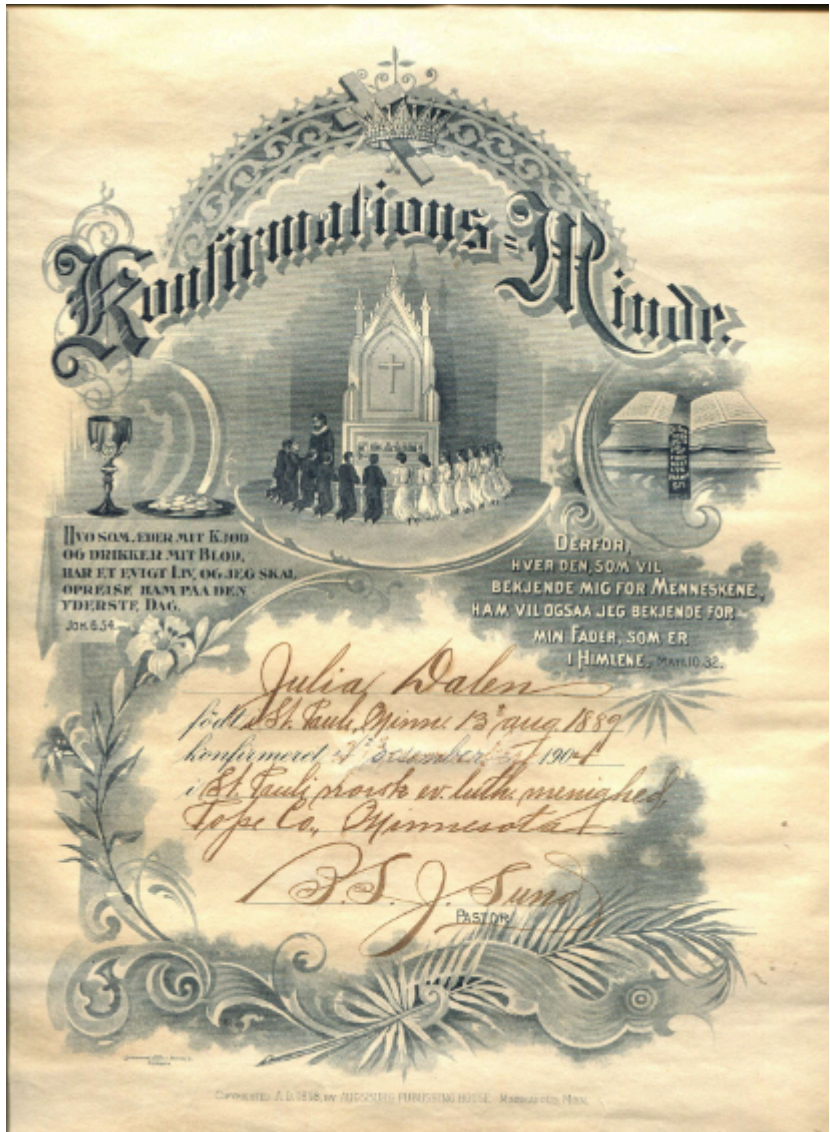 Konfirmations=Minde.
HVO SOM ÆDER MIT KJØD
OG DRIKKER MIT BLOD,
HAR ET EVIGT LIV, OG JEG SKAL
OPREISE HAM PAA DEN
YDERSTE DAG.
JOH. 6. 54.
DERFOR,
HVER DEN, SOM VIL
BEKJENDE MIG FOR MENNESKENE,
HAM VIL OGSAA JEG BEKJENDE FOR
MIN FADER, SOM ER
I HIMLENE. MATH. 10. 32.
Julia Dalen
født i St. Paul, Minn. 13de aug 1889
konfirmeret Desember 1904
i St. Pauli norsk ev. luth. menighed
Pope Co., Minnesota
PASTOR
COPYRIGHTED A.D. 1898, BY AUGSBURG PUBLISHING HOUSE MINNEAPOLIS, MINN.